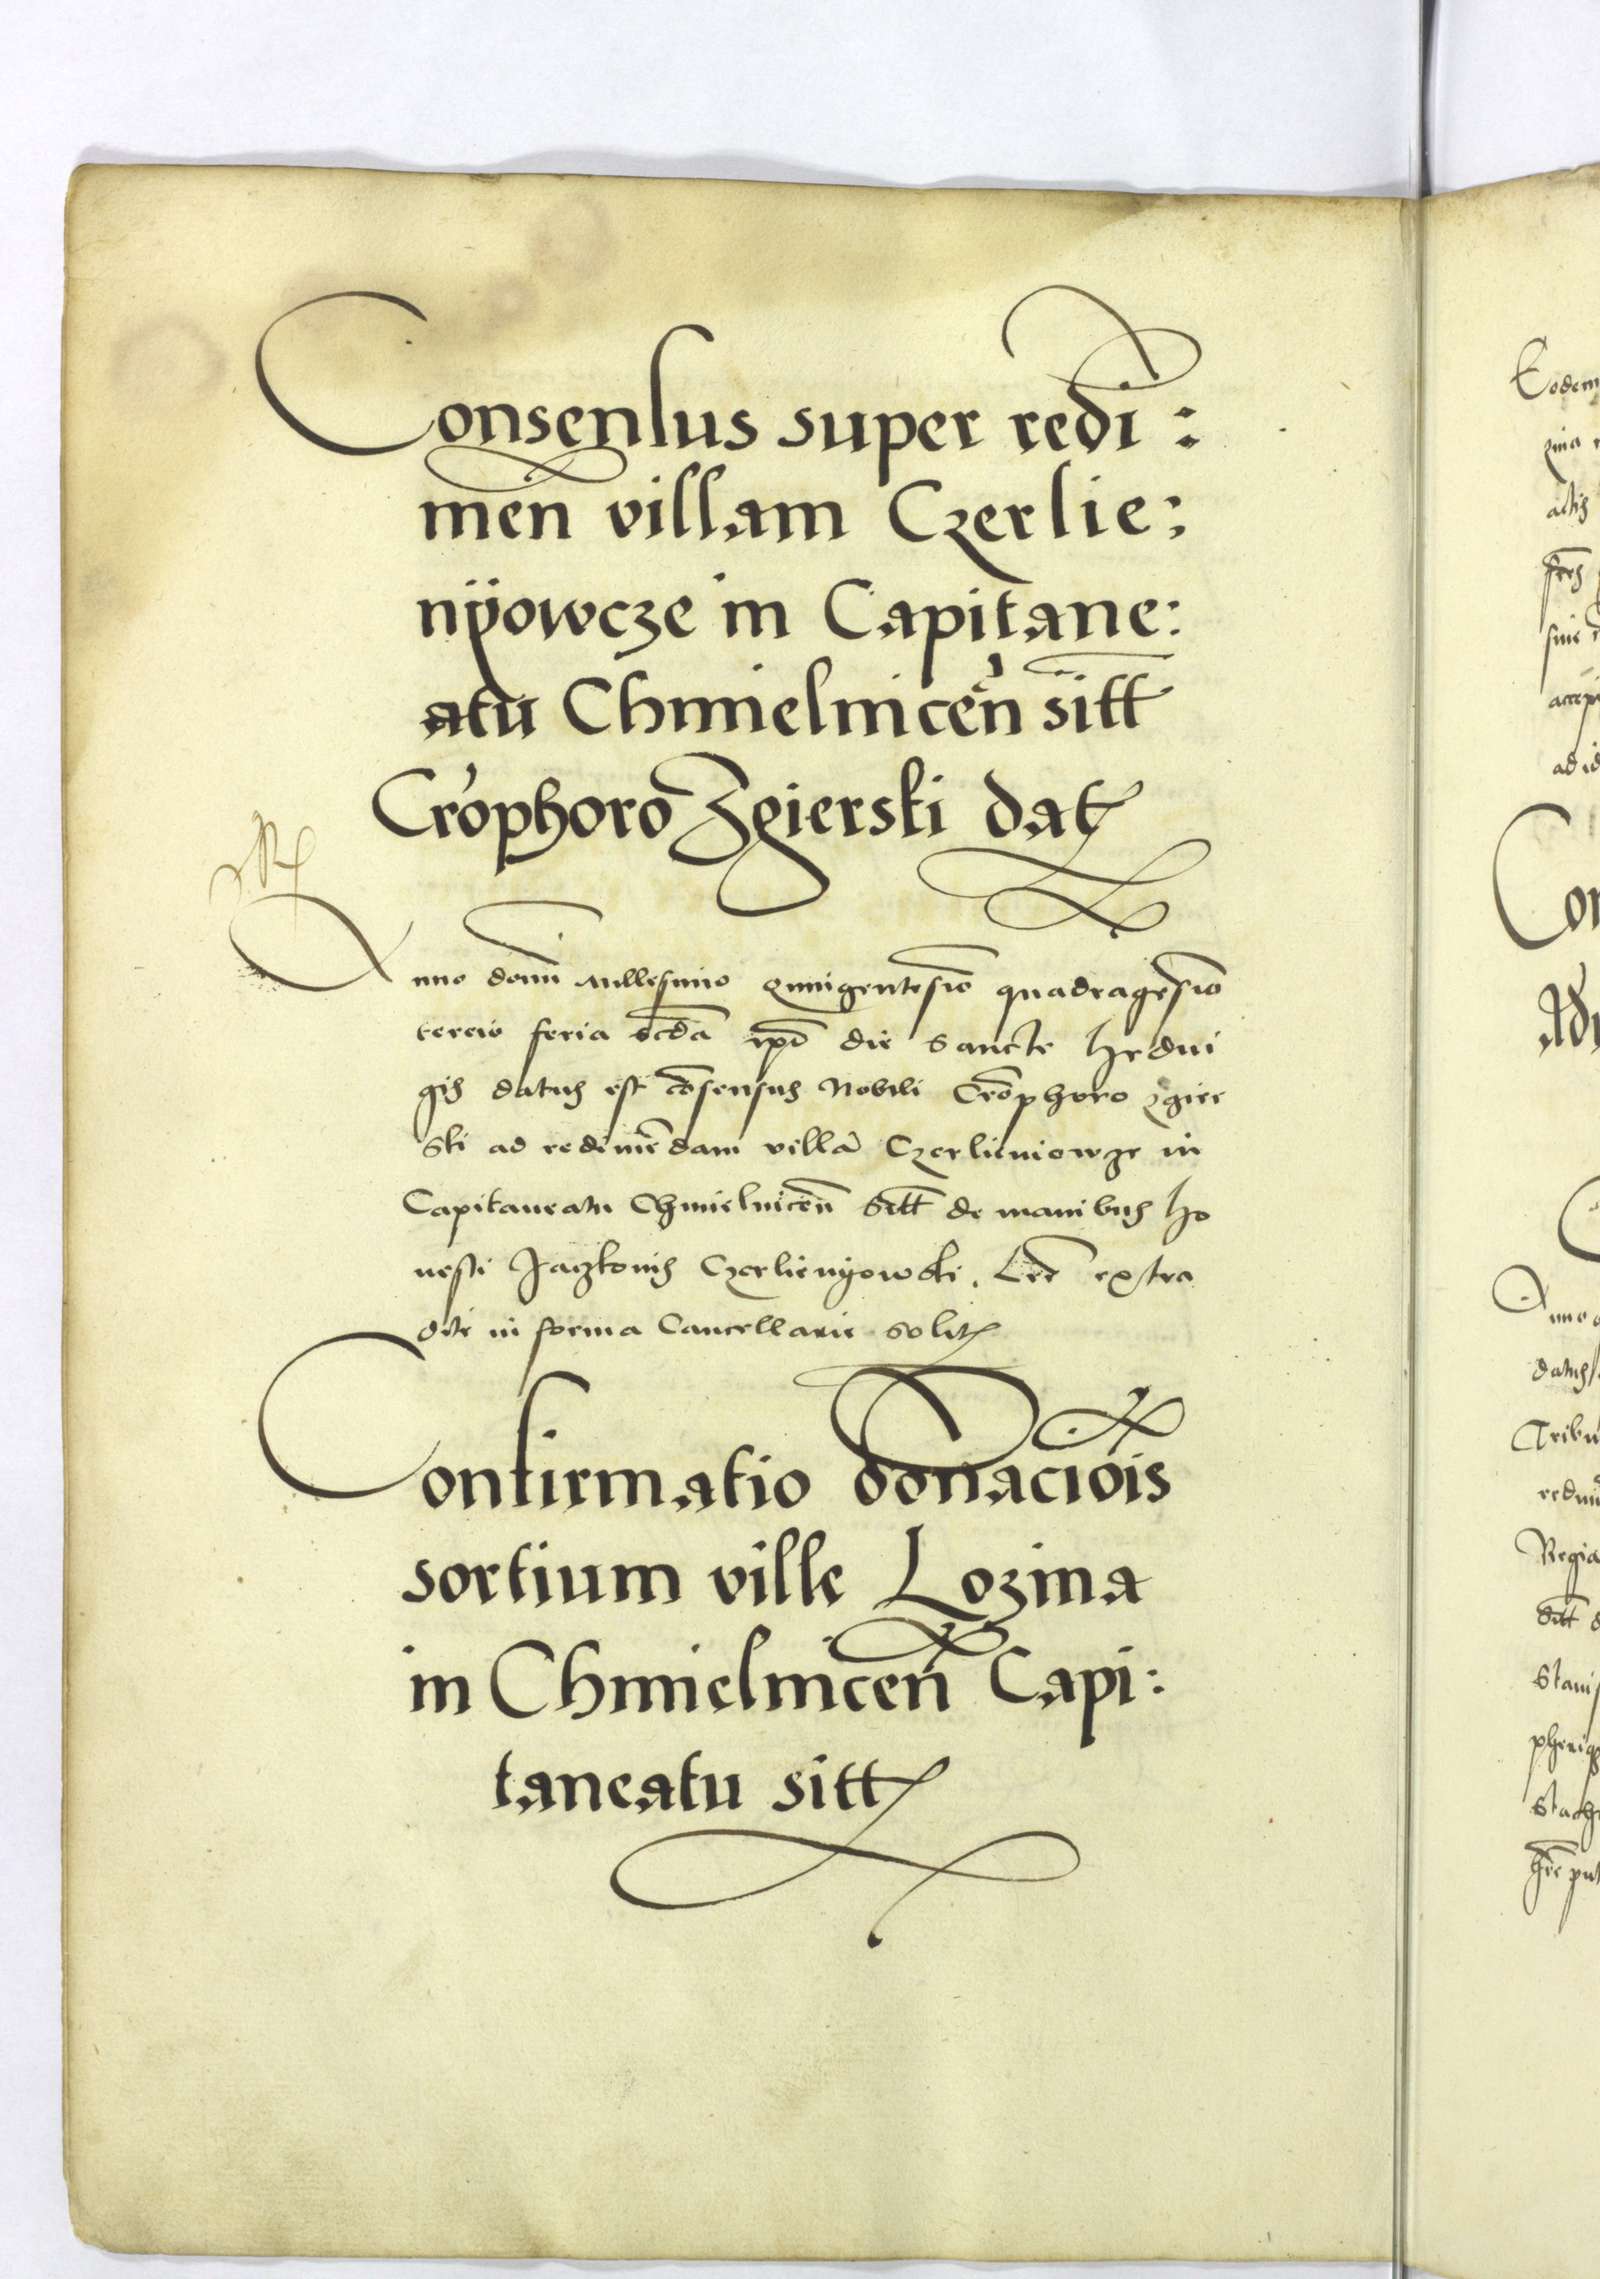 Consensus super redi:
men villam Czerlie:
nÿowcze in Capitane:
atu Chmielnicen̄ sitt̄
Cr̄ophoro Zgierski dat
Anno domī Millesimo quingentesīo quadragesīo
tercio feria scd̄a ip̄o die Sancte Hedui
gis datus est cōsensus Nobili Cr̄ophoro Zgier
ski ad redimēdam villā Czerlieniowze in
Capitaneatu Chmielnicen̄ Sitt̄ de manibus ho
nesti Jaczkonis Czerlienÿowski. Lrē extra
dite in forma Cancellarie solit
Confirmatio donaciōis
sortium ville Lozina
in Chmielnicen̄ Capi:
taneatu sitt
Eodem
Anno
datus
Tribu
Regia